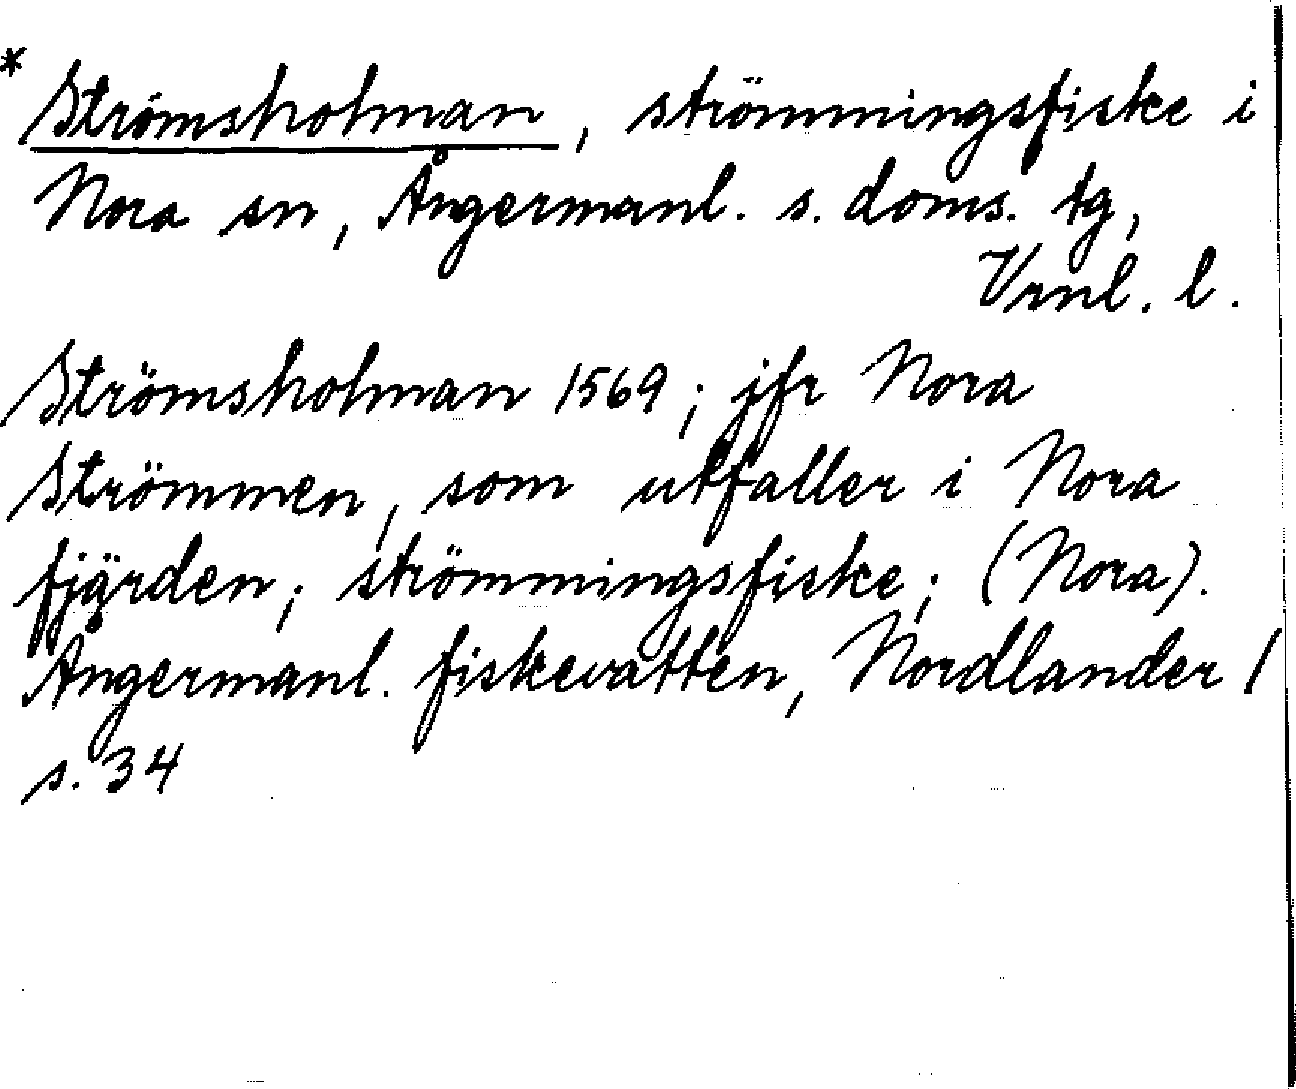 * Strömsholman, strömmingsfiske i
Nora sn, Ångermanl. s. doms. tg,
Vrnl. l.
Strömsholman 1569; jfr Nora
Strömmen, som utfaller i Nora
fjärden; strömmingsfiske; (Nora).
Ångermanl. fiskevatten, Nordlander 1
s. 34